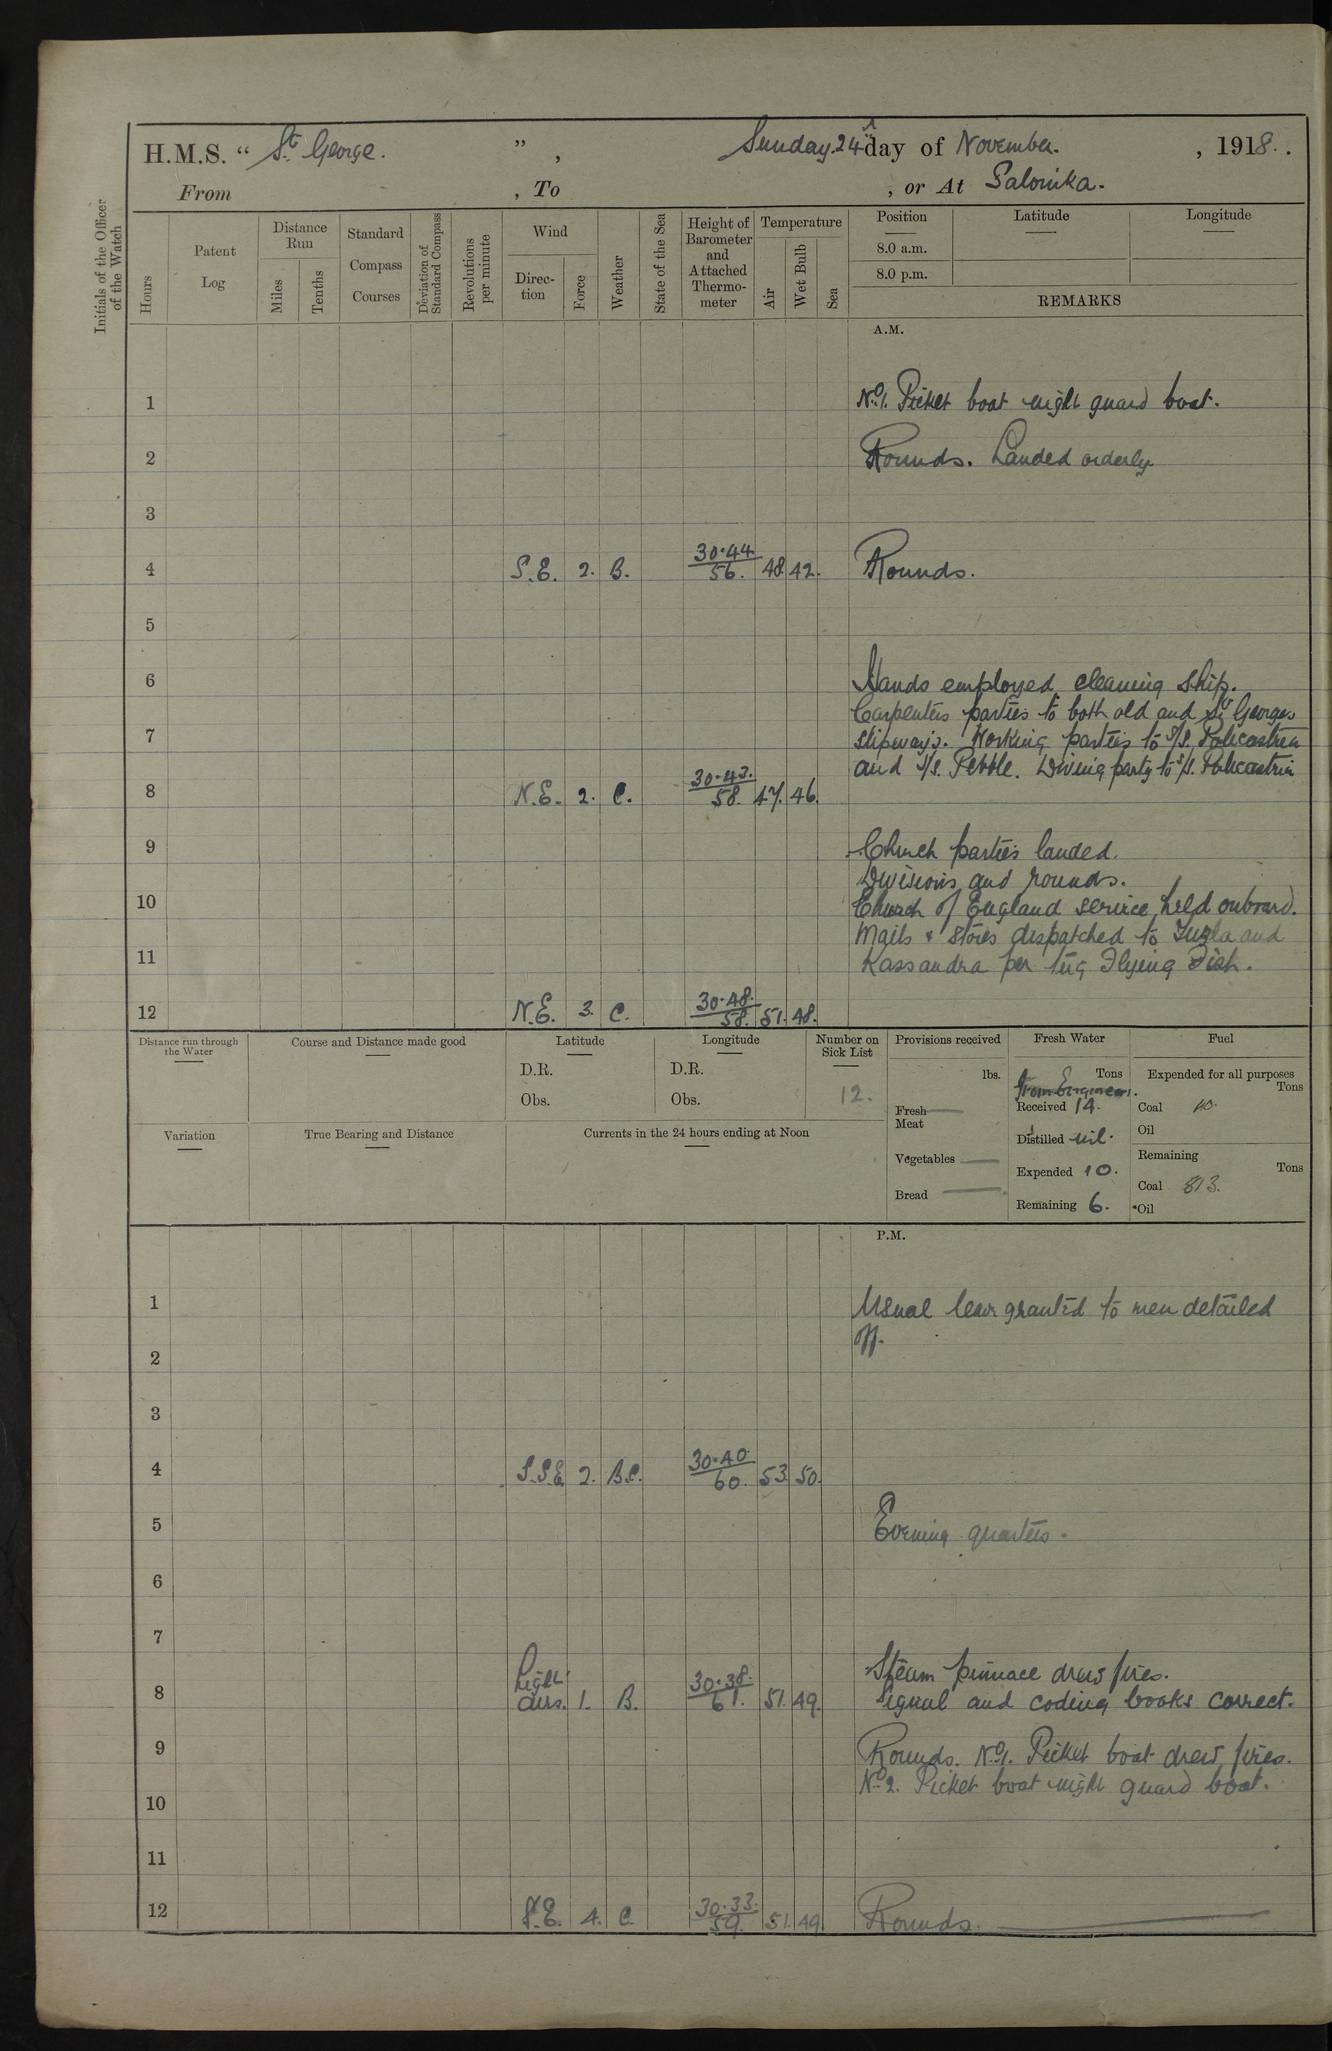 H.M.S. “ St George. ” , Sunday. 24th day of November. , 1918. .
From , To , or At Salonika.
Initials of the Officer of the Watch
Hours
Patent Log
Distance Run
Miles
Tenths
Standard Compass Courses
Deviation of Standard Compass
Revolutions per minute
Wind
Direc-tion
Force
Weather
State of the Sea
Height of Barometer and Attached Thermo-meter
Temperature
Air
Wet Bulb
Sea
Position
8.0 a.m.
8.0 p.m.
Latitude
Longitude
REMARKS
A.M.
1 No 1. Picket boat night guard boat.
2 Rounds. Landed orderly
3
4 S.E. 2. B. 30.44 56. 48. 42. Rounds.
5
6 Hands employed cleaning ship.
Carpenters parties to both old and St Georges
7 slipways. Working parties to S/S. Policastria
and S/S. Pebble. Diving party to S/S. Policastria
8 N.E. 2. C. 30.43. 58. 47. 46.
9 Church parties landed.
Divisions and rounds.
10 Church of England service held onboard.
Mails & Stores dispatched to Tuzla and
11 Kassandra per tug Flying Fish.
12 N.E. 3. C. 30.48. 58. 51. 48.
Distance run through the Water
Course and Distance made good
Latitude
D.R.
Obs.
Longitude
D.R.
Obs.
Number on Sick List
12.
Variation
True Bearing and Distance
Currents in the 24 hours ending at Noon
Provisions received
lbs.
Fresh Meat
Vegetables
Bread
Fresh Water
Tons
from Engineers.
Received 14.
Distilled nil.
Expended 10.
Remaining 6.
Fuel
Expended for all purposes
Tons
Coal 10.
Oil
Remaining
Tons
Coal 813.
Oil
P.M.
1 Usual leave granted to men detailed
off.
2
3
4 S.S.E. 2. B.C. 30.40. 60. 53. 50.
5 Evening quarters.
6
7
Steam pinnace drew fires.
8 Light airs. 1. B. 30.38. 61. 51. 49. Signal and coding books correct.
9 Rounds. No 1. Picket boat drew fires.
No 2. Picket boat night guard boat.
10
11
12 S.E. 4. C. 30.33. 59. 51. 49. Rounds.